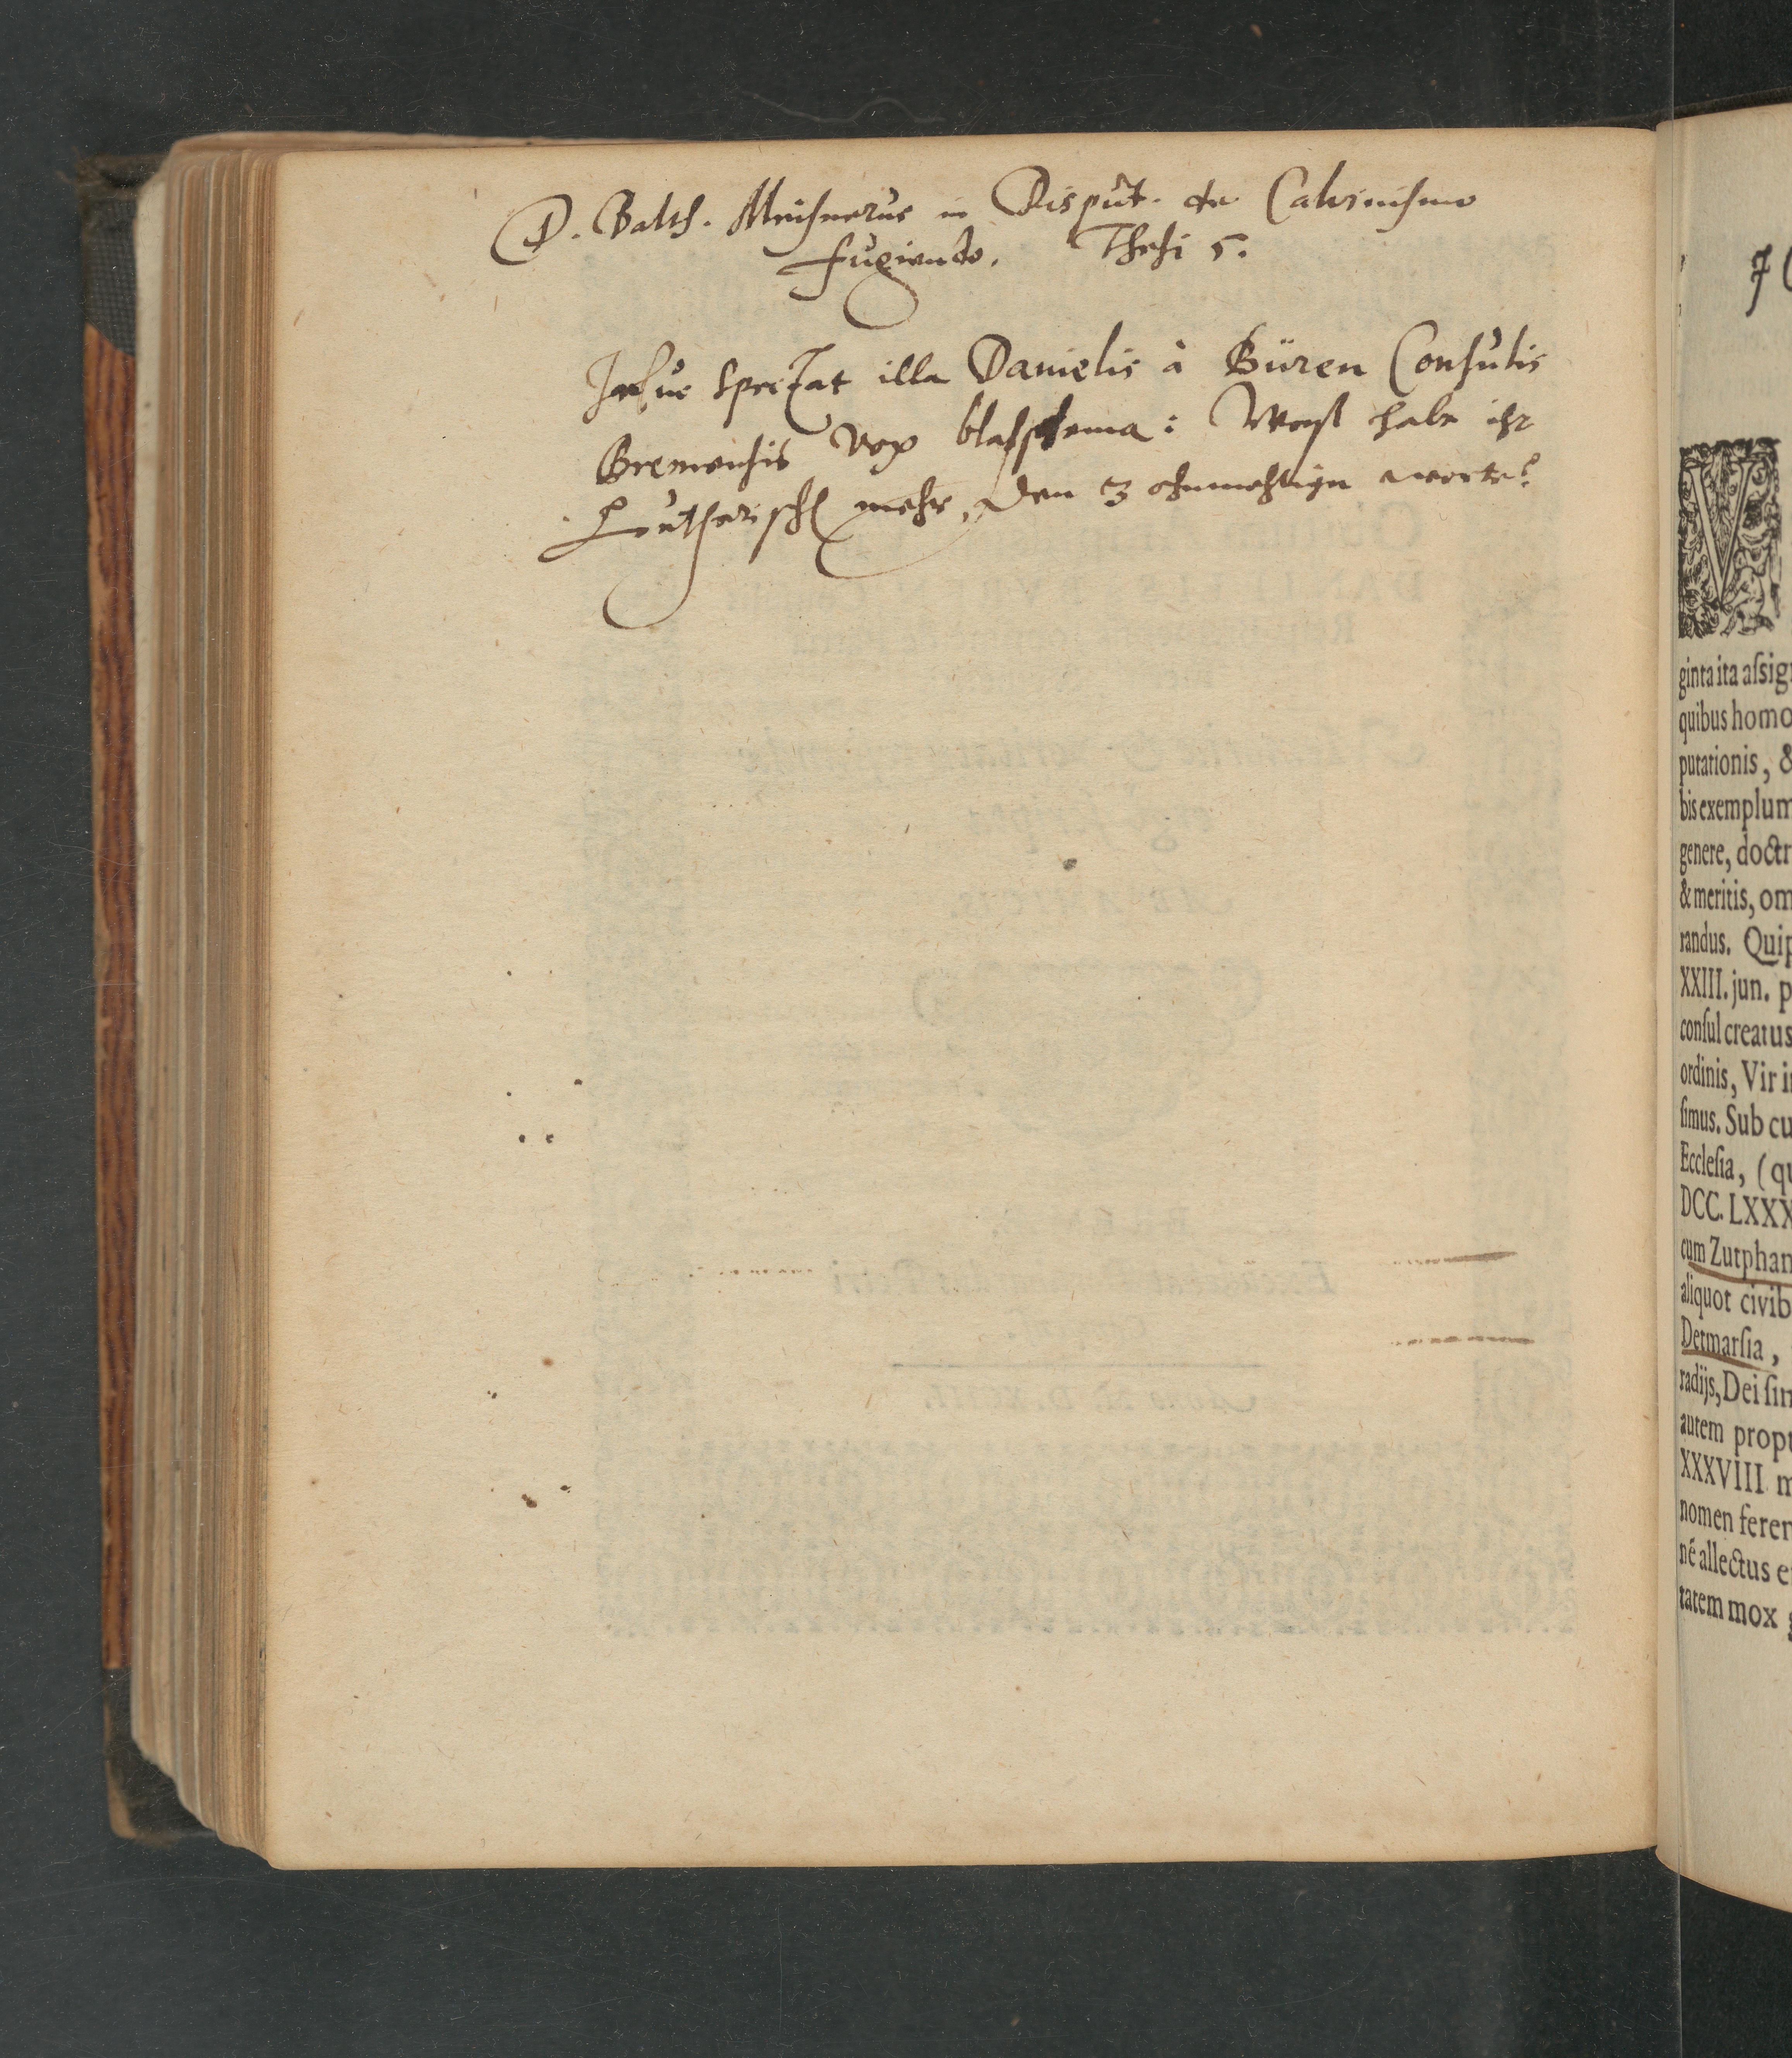 D. Balth. Meisnerus in Disput. de Calvinismo
fugiendo. Thesi 5.
spectat illa Danielis à Büren Consulis
Bremensis vox blasphema: Waß habt ihr
Lutherisch mehr, den 3 ohnmechtige worte?
ginta ita aſsig
quibus homo
putationis, &
bis exemplum
genere, doctr
& meritis, om
randus. Quip
XXIII. jun. p
conſul creatus
ordinis, Vir i
ſimus. Sub cu
Eccleſia, (qu
DCC. LXXX
cum Zutphan
aliquot civib
Detmarſia,
radijs, Dei ſin
autem propt
XXXVIII. m
nomen ferer
né allectus e
tatem mox